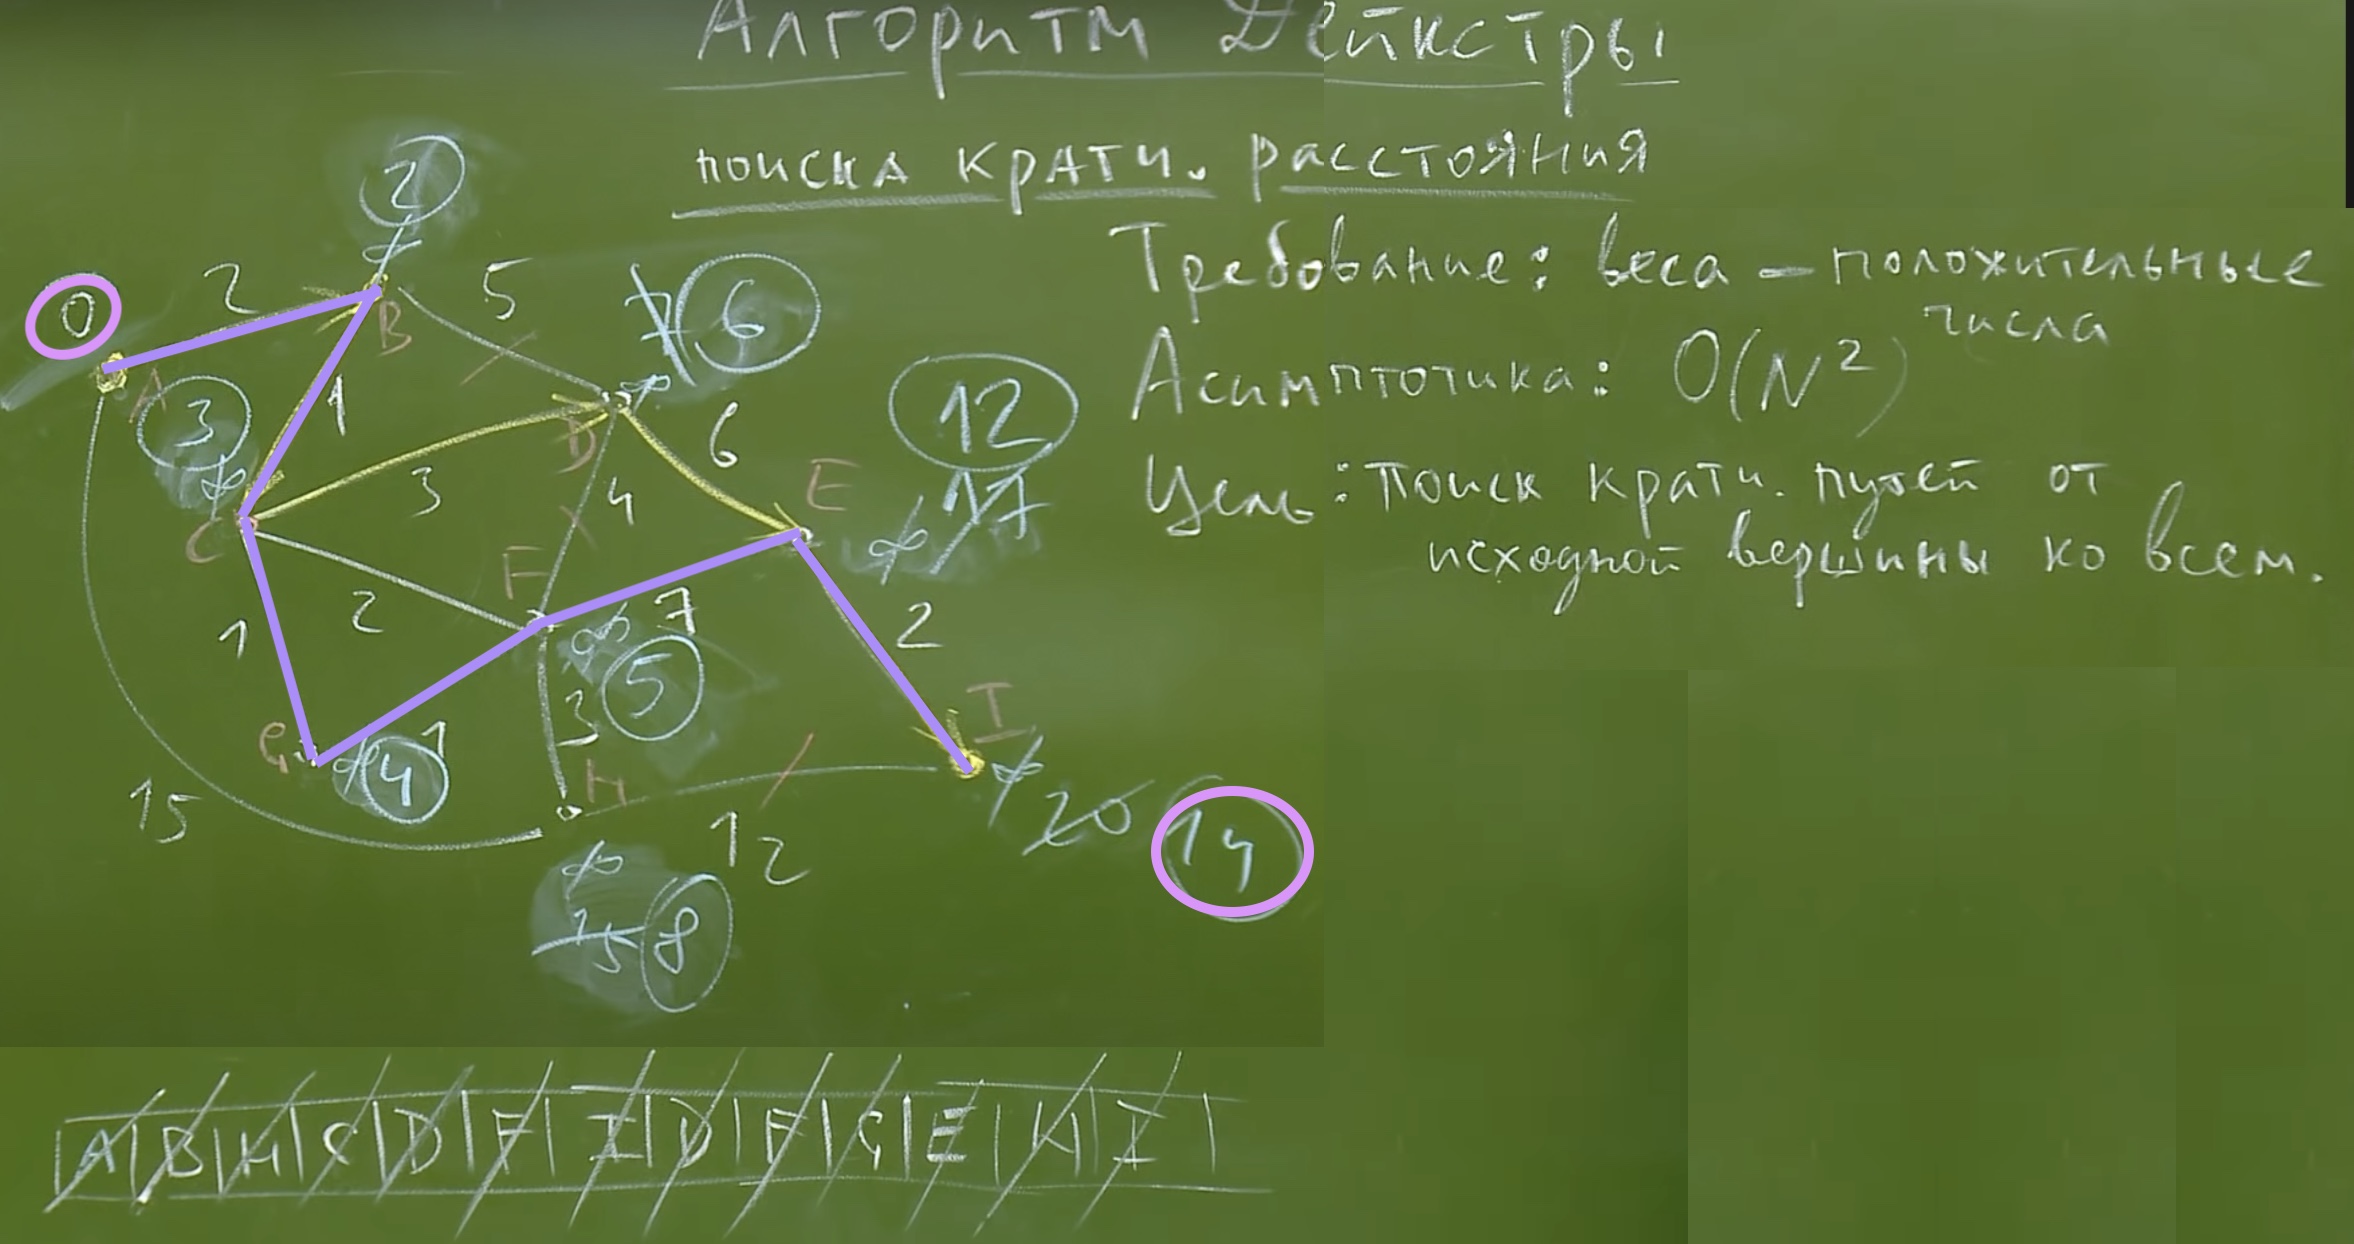 Алгоритм Дейкстры
поиска кратч. расстояния
Требование: веса – положительные
числа
Асимптотика: O(N²)
Цель: Поиск кратч. путей от
исходной вершины ко всем.
2
∞
0
2
5
7
6
B
A
3
1
∞
∞
12
D
6
E
17
∞
3
4
C
F
2
7
∞
5
2
1
3
I
G
∞
4
1
H
∞
20
14
15
12
∞
15
8
|A|B|H|C|D|F|I|D|F|G|E|H|I|